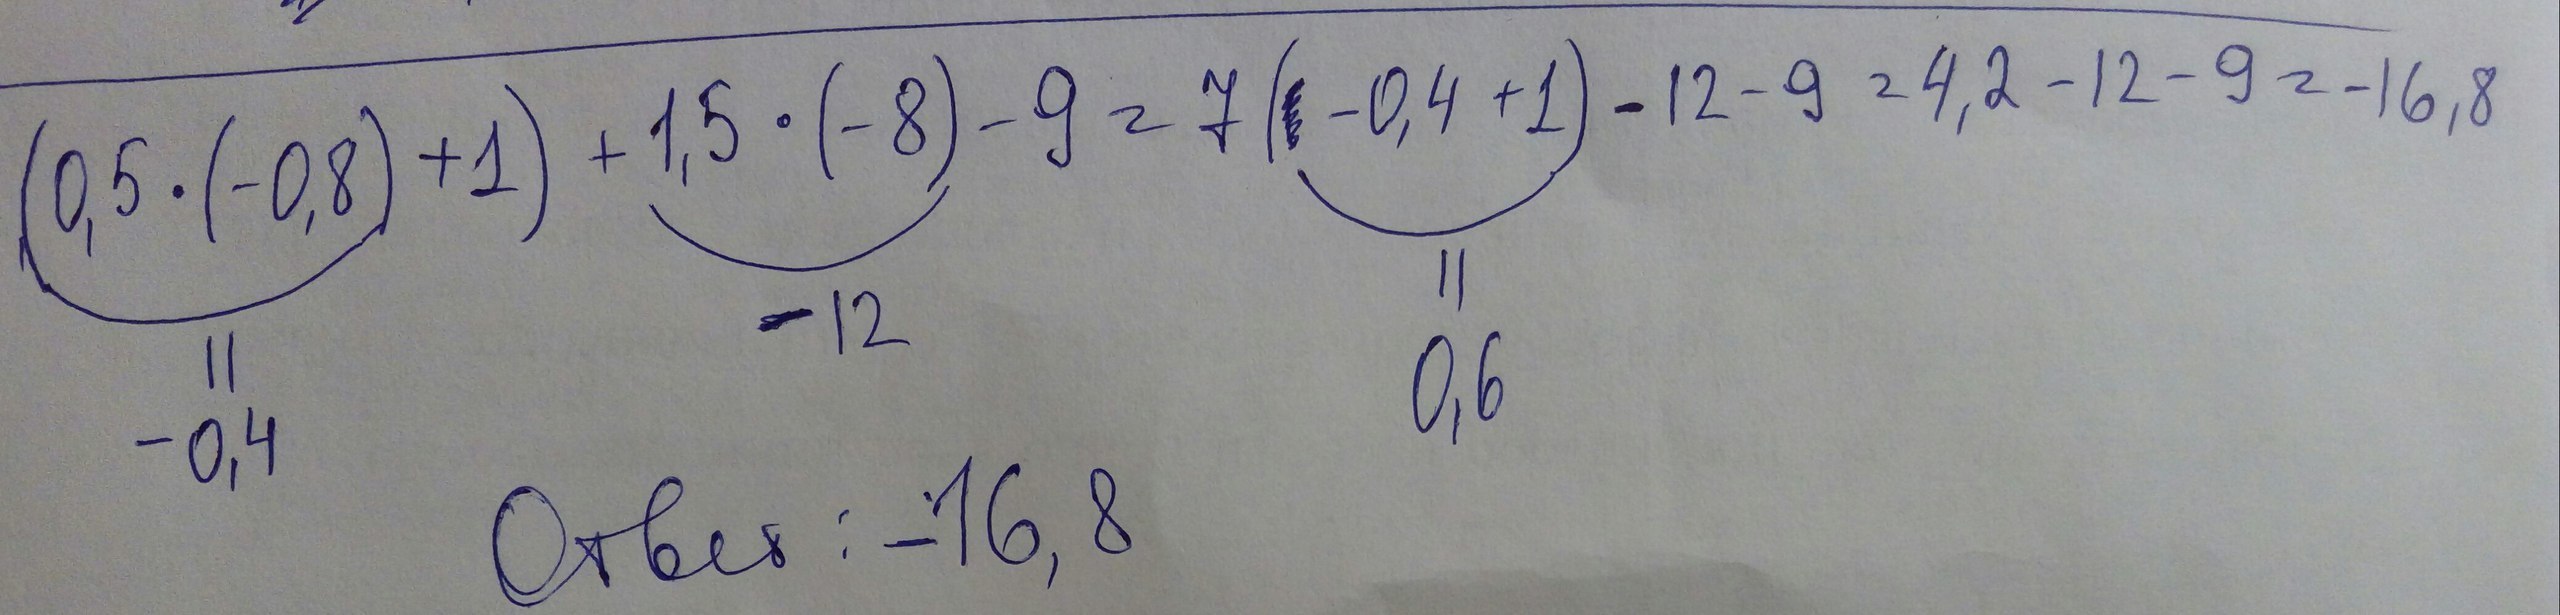 (0,5·(-0,8)+1) + 1,5·(-8) - 9 = 7(-0,4+1) - 12 - 9 = 4,2 - 12 - 9 = -16,8
-12
=
=
-0,4
0,6
Ответ: -16,8